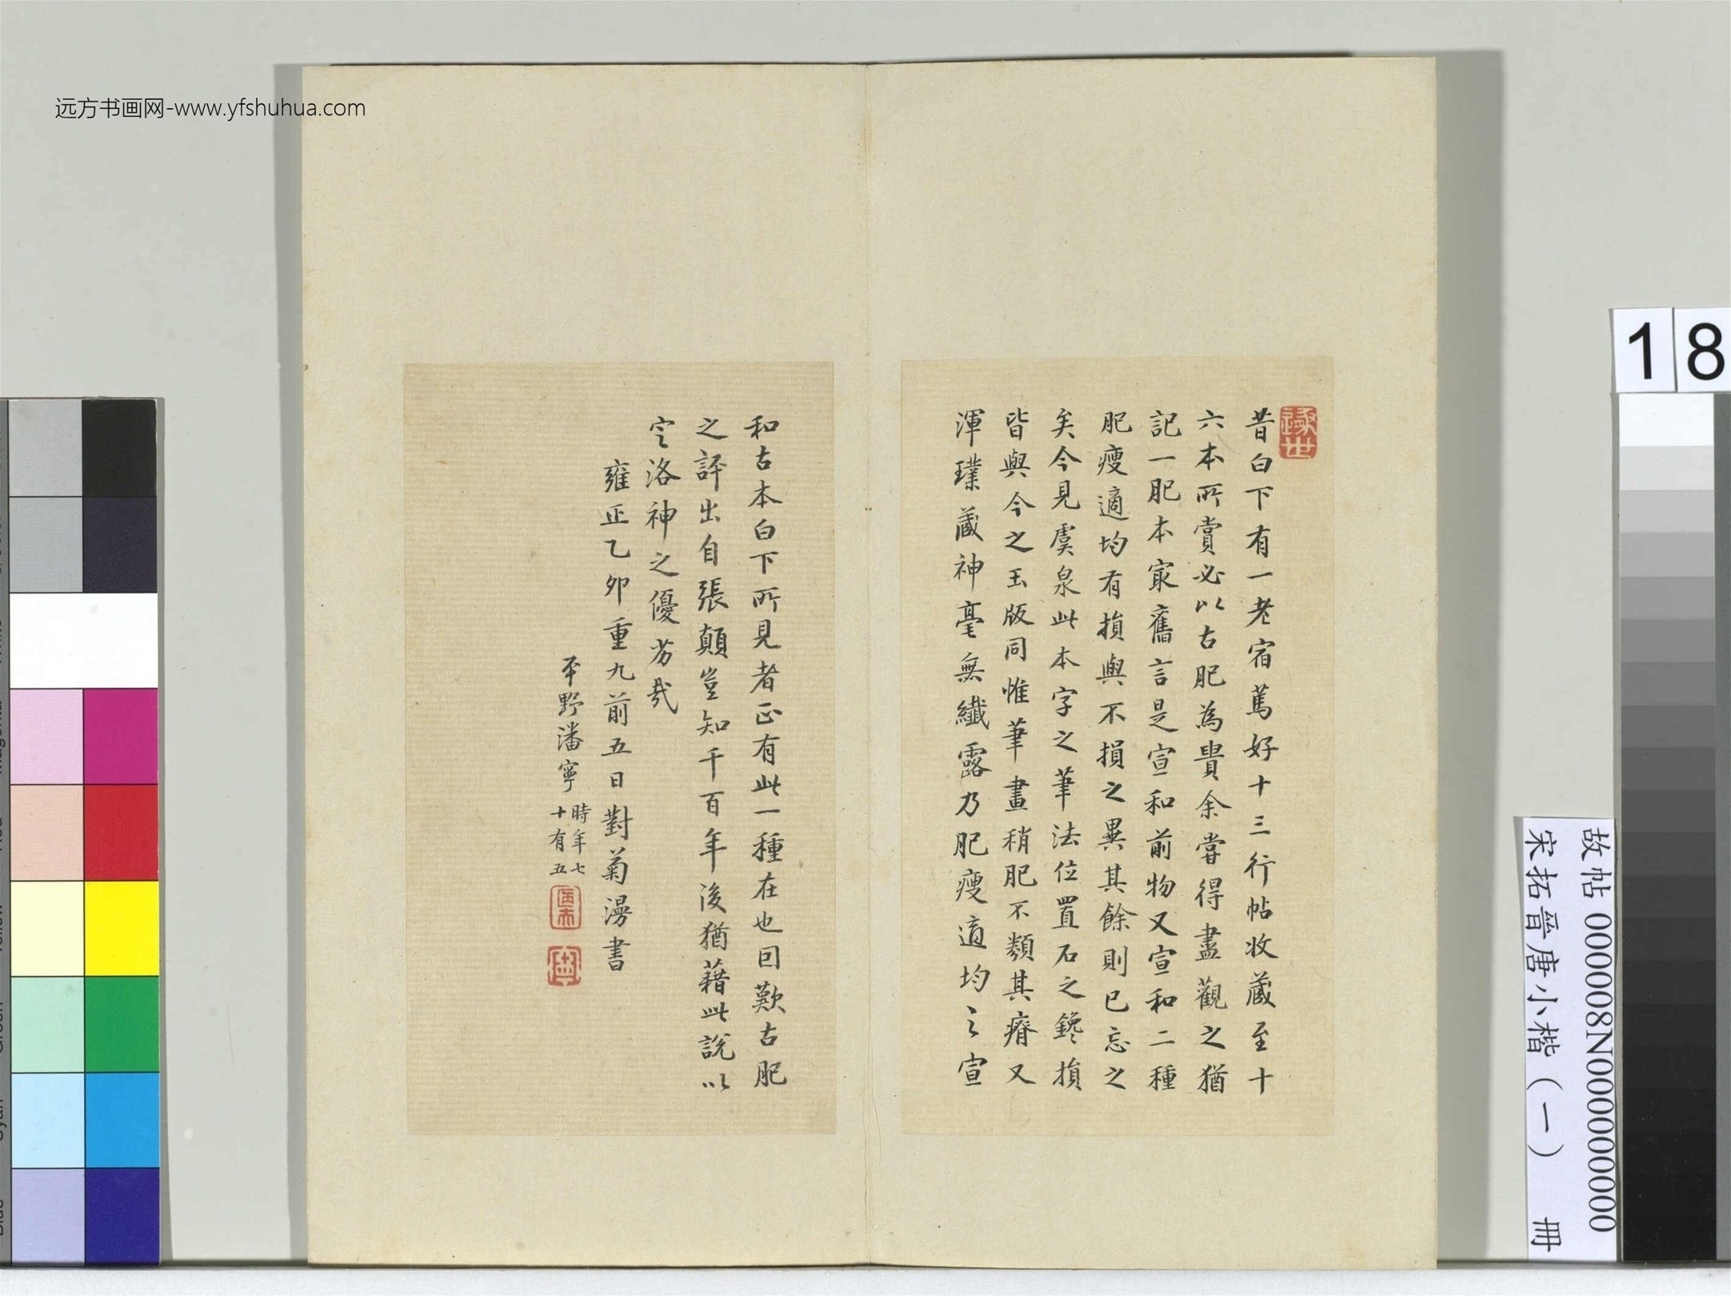 远方书画网-www.yfshuhua.com
昔白下有一老宿篤好十三行帖收藏至十
六本所賞必以古肥為貴余嘗得盡觀之猶
記一肥本寂舊言是宣和前物又宣和二種
肥瘦適均有損與不損之異其餘則已忘之
矣今見虞泉此本字之筆法位置石之鑱損
皆與今之玉版同惟筆畫稍肥不類其瘠又
渾璞藏神毫無纖露乃肥瘦適均之宣
和古本白下所見者正有此一種在也因歎古肥
之評出自張顛豈知千百年後猶藉此說以
定洛神之優劣哉
雍正乙卯重九前五日對菊漫書
平野潘寧
時年七
十有五
18
故帖 000008N000000000
宋拓晉唐小楷(一) 冊